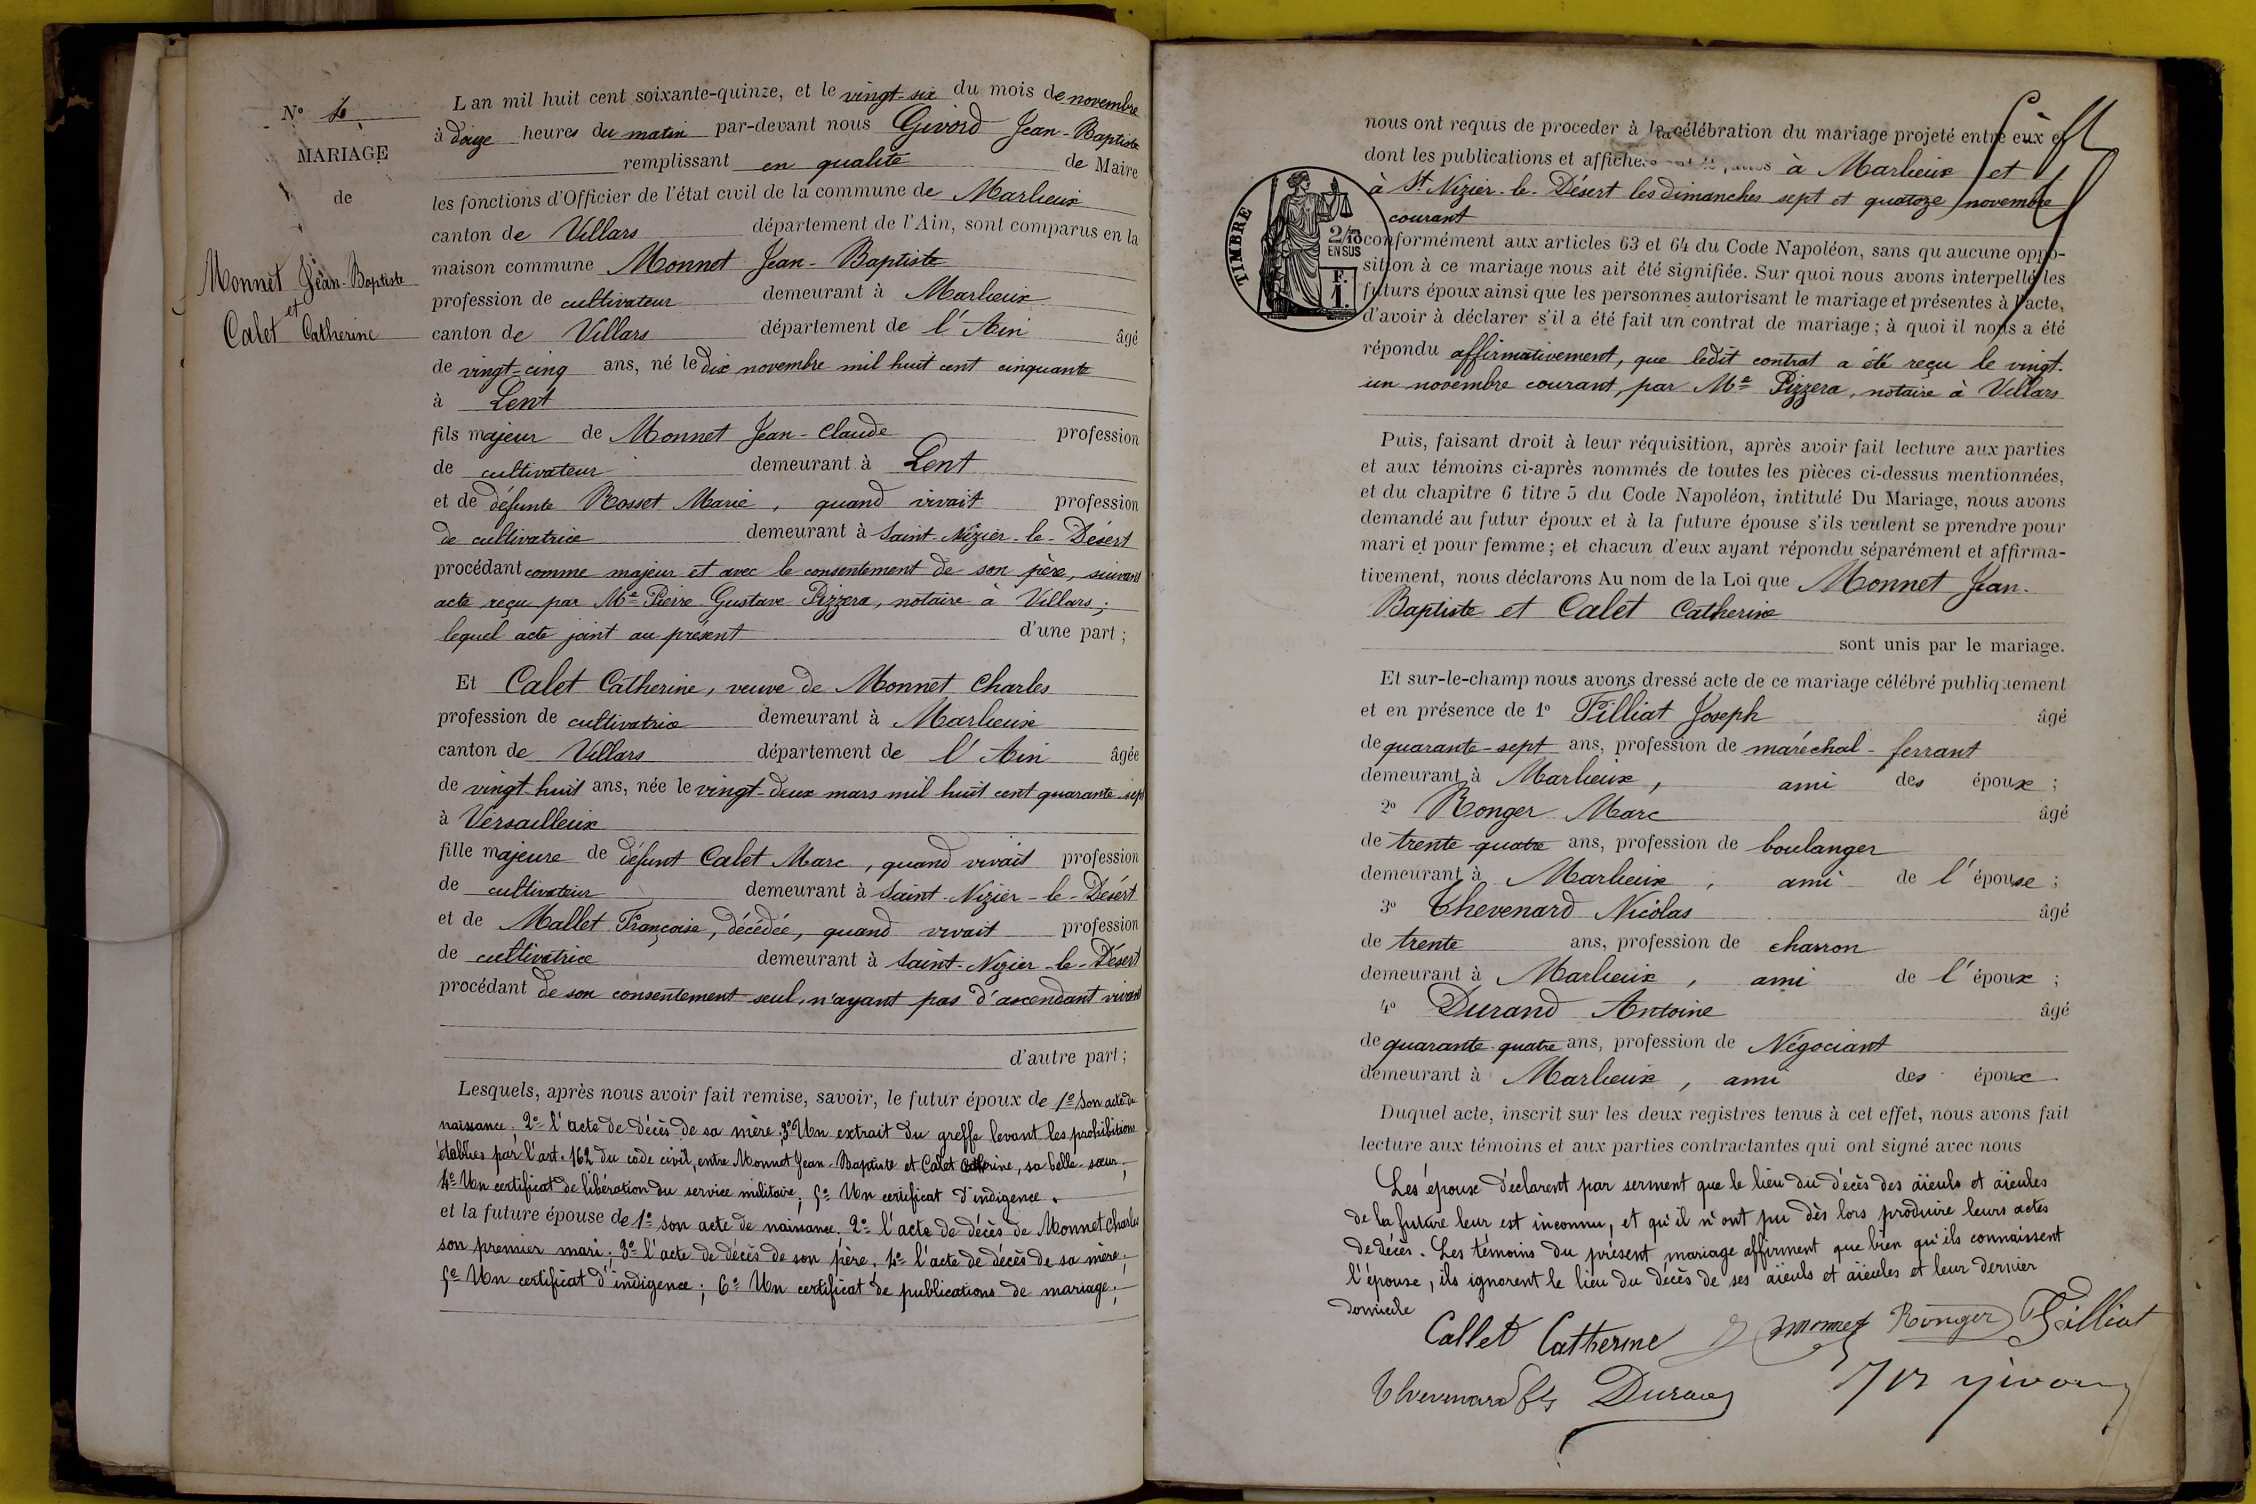 N° 4
MARIAGE
de
Monnet Jean-Baptiste
et
Calet Catherine
L an mil huit cent soixante-quinze, et le vingt-six du mois de novembre
à douze heures du matin par-devant nous Givord Jean-Baptiste
remplissant en qualité de Maire
les fonctions d'Officier de l'état civil de la commune de Marlieux
canton de Villars département de l'Ain, sont comparus en la
maison commune Monnet Jean-Baptiste
profession de cultivateur demeurant à Marlieux
canton de Villars département de l'Ain âgé
de vingt-cinq ans, né le dix novembre mil huit cent cinquante
à Lent
fils majeur de Monnet Jean-Claude profession
de cultivateur demeurant à Lent
et de défunte Rosset Marie, quand vivait profession
de cultivatrice demeurant à Saint-Nizier-le-Désert
procédant comme majeur et avec le consentement de son père, suivant
acte reçu par Me Pierre Gustave Pizzera, notaire à Villars;
lequel acte joint au présent d'une part;
Et Calet Catherine, veuve de Monnet Charles
profession de cultivatrice demeurant à Marlieux
canton de Villars département de l'Ain âgée
de vingt-huit ans, née le vingt-deux mars mil huit cent quarante-sept
à Versailleux
fille majeure de défunt Calet Marc, quand vivait profession
de cultivateur demeurant à Saint-Nizier-le-Désert
et de Mallet Françoise, décédée, quand vivait profession
de cultivatrice demeurant à Saint-Nizier-le-Désert
procédant de son consentement seul, n'ayant pas d'ascendant vivant
d'autre part;
Lesquels, après nous avoir fait remise, savoir, le futur époux de 1° Son acte de
naissance. 2° l'acte de décès de sa mère. 3° Un extrait du greffe levant les prohibitions
établies par l'art. 162 du code civil, entre Monnet Jean-Baptiste et Calet Catherine, sa belle-sœur;
4° Un certificat de libération du service militaire; 5° Un certificat d'indigence.
et la future épouse de 1° son acte de naissance. 2° l'acte de décès de Monnet Charles
son premier mari. 3° l'acte de décès de son père. 4° l'acte de décès de sa mère;
5° Un certificat d'indigence; 6° Un certificat de publications de mariage;
nous ont requis de proceder à la célébration du mariage projeté entre eux et
dont les publications et affiches à Marlieux et
à St Nizier-le-Désert les dimanches sept et quatoze novembre
courant
TIMBRE
2/10
EN SUS
F.
1.
conformément aux articles 63 et 64 du Code Napoléon, sans qu aucune oppo-
sition à ce mariage nous ait été signifiée. Sur quoi nous avons interpellé les
futurs époux ainsi que les personnes autorisant le mariage et présentes à l'acte,
d'avoir à déclarer s'il a été fait un contrat de mariage; à quoi il nous a été
répondu affirmativement, que ledit contrat a été reçu le vingt-
un novembre courant, par Me Pizzera, notaire à Villars
Puis, faisant droit à leur réquisition, après avoir fait lecture aux parties
et aux témoins ci-après nommés de toutes les pièces ci-dessus mentionnées,
et du chapitre 6 titre 5 du Code Napoléon, intitulé Du Mariage, nous avons
demandé au futur époux et à la future épouse s'ils veulent se prendre pour
mari et pour femme; et chacun d'eux ayant répondu séparément et affirma-
tivement, nous déclarons Au nom de la Loi que Monnet Jean-
Baptiste et Calet Catherine
sont unis par le mariage.
Et sur-le-champ nous avons dressé acte de ce mariage célébré publiquement
et en présence de 1° Filliat Joseph âgé
de quarante-sept ans, profession de maréchal-ferrant
demeurant à Marlieux, ami des époux;
2° Ronger Marc âgé
de trente-quatre ans, profession de boulanger
demeurant à Marlieux, ami de l'épouse;
3° Thevenard Nicolas âgé
de trente ans, profession de charron
demeurant à Marlieux, ami de l'époux;
4° Durand Antoine âgé
de quarante-quatre ans, profession de Négociant
demeurant à Marlieux, ami des époux
Duquel acte, inscrit sur les deux registres tenus à cet effet, nous avons fait
lecture aux témoins et aux parties contractantes qui ont signé avec nous
Les époux déclarent par serment que le lieu du décès des aïeuls et aïeules
de la future leur est inconnu, et qu'il n'ont pu dès lors produire leurs actes
de décès. Les témoins du présent mariage affirment que bien qu'ils connaissent
l'épouse, ils ignorent le lieu du décès de ses aïeuls et aïeules et leur dernier
domicile
Callet Catherine Monnet Ronger Filliat
Thevenard fils Durand Givord